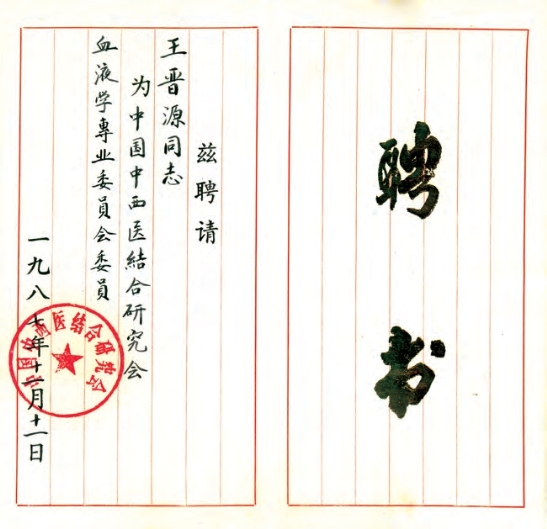 聘书
兹聘请
王晋源同志
为中国中西医結合研究会
血液学專业委員会委員
一九八七年十二月十一日
中国中西医结合研究会